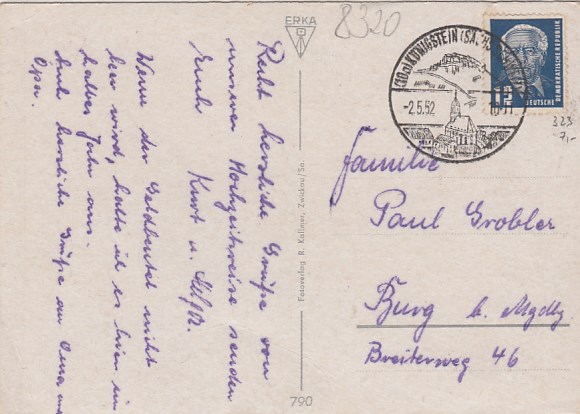 ERKA
8320
(10a) KÖNIGSTEIN (SA
-2.5.52
12
DEUTSCHE
DEMOKRATISCHE REPUBLIK
323
7,-
Recht herzliche Grüße von
unserer Hochzeitsreise senden
Euch Kurt u.
Wenn der Geldbeutel nicht
leer wird, halte ich es hier ein
halbes Jahr aus.
Auch herzliche Grüße an Oma und
Opa.
Fotoverlag R. Kallmer, Zwickau/Sa.
790
Familie
Paul Grobler
Burg b. Mgdbg.
Breiterweg 46